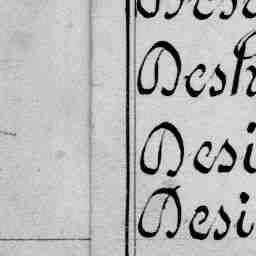 Desh
Desi
Desi